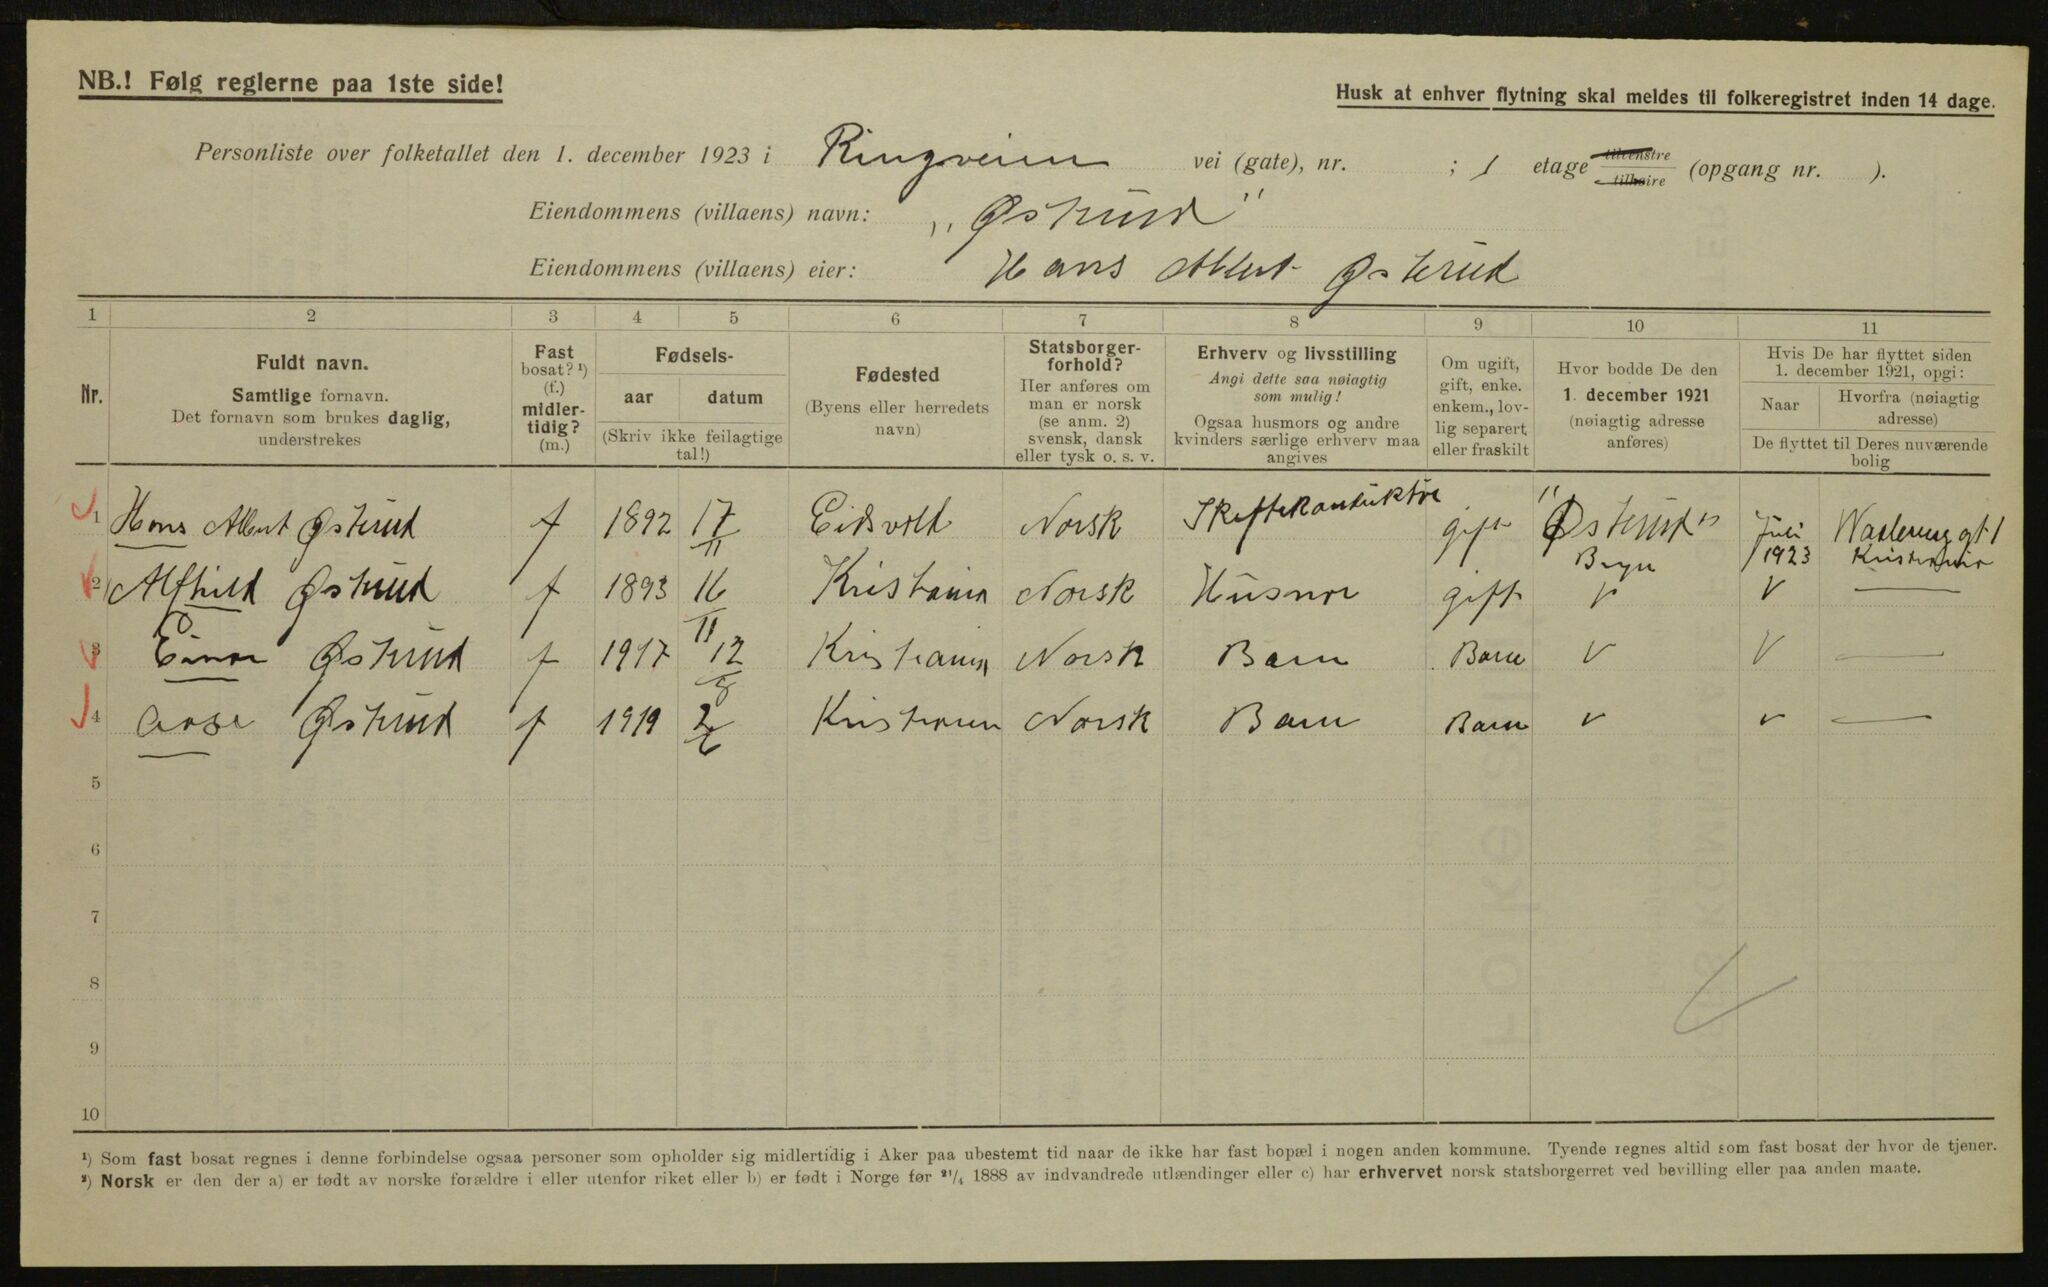 NB.! Følg reglerne paa 1ste side!
Husk at enhver flytning skal meldes til folkeregistret inden 14 dage.
Personliste over folketallet den 1. december 1923 i Ringveien vei (gate), nr. ; 1 etage tilvenstre tilhøire (opgang nr. ).
Eiendommens (villaens) navn: „Østerud"
Eiendommens (villaens) eier: Hans Albert Østerud
1 2 3 4 5 6 7 8 9 10 11
Nr.
Fuldt navn.
Samtlige fornavn.
Det fornavn som brukes daglig,
understrekes
Fast
bosat? ¹)
(f.)
midler-
tidig?
(m.)
Fødsels-
aar datum
(Skriv ikke feilagtige
tal!)
Fødested
(Byens eller herredets
navn)
Statsborger-
forhold?
Her anføres om
man er norsk
(se anm. 2)
svensk, dansk
eller tysk o. s. v.
Erhverv og livsstilling
Angi dette saa nøiagtig
som mulig!
Ogsaa husmors og andre
kvinders særlige erhverv maa
angives
Om ugift,
gift, enke.
enkem., lov-
lig separert
eller fraskilt
Hvor bodde De den
1. december 1921
(nøiagtig adresse
anføres)
Hvis De har flyttet siden
1. december 1921, opgi:
Naar
Hvorfra (nøiagtig
adresse)
De flyttet til Deres nuværende
bolig
1 Hans Albert Østerud f 1892 17/11 Eidsvold Norsk Skiftekonduktør gift "Østerud" Bryn Juli 1923 gt 1 Kristiania
2 Alfhild Østerud f 1893 16/11 Kristiania Norsk Husmor gift v v —
3 Einar Østerud f 1917 12/8 Kristiania Norsk Barn Barn v v —
4 Aase Østerud f 1919 2/6 Kristiania Norsk Barn Barn v v —
5
6
7
8
9
10
¹) Som fast bosat regnes i denne forbindelse ogsaa personer som opholder sig midlertidig i Aker paa ubestemt tid naar de ikke har fast bopæl i nogen anden kommune. Tyende regnes altid som fast bosat der hvor de tjener.
²) Norsk er den der a) er født av norske forældre i eller utenfor riket eller b) er født i Norge før ²¹/₄ 1888 av indvandrede utlændinger eller c) har erhvervet norsk statsborgerret ved bevilling eller paa anden maate.